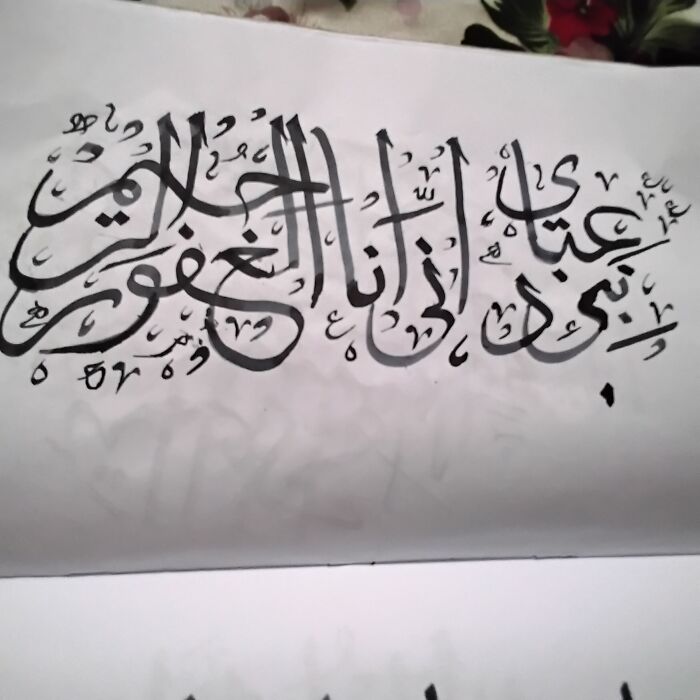 نبئ عبادی انّی انا الغفور الرحیم